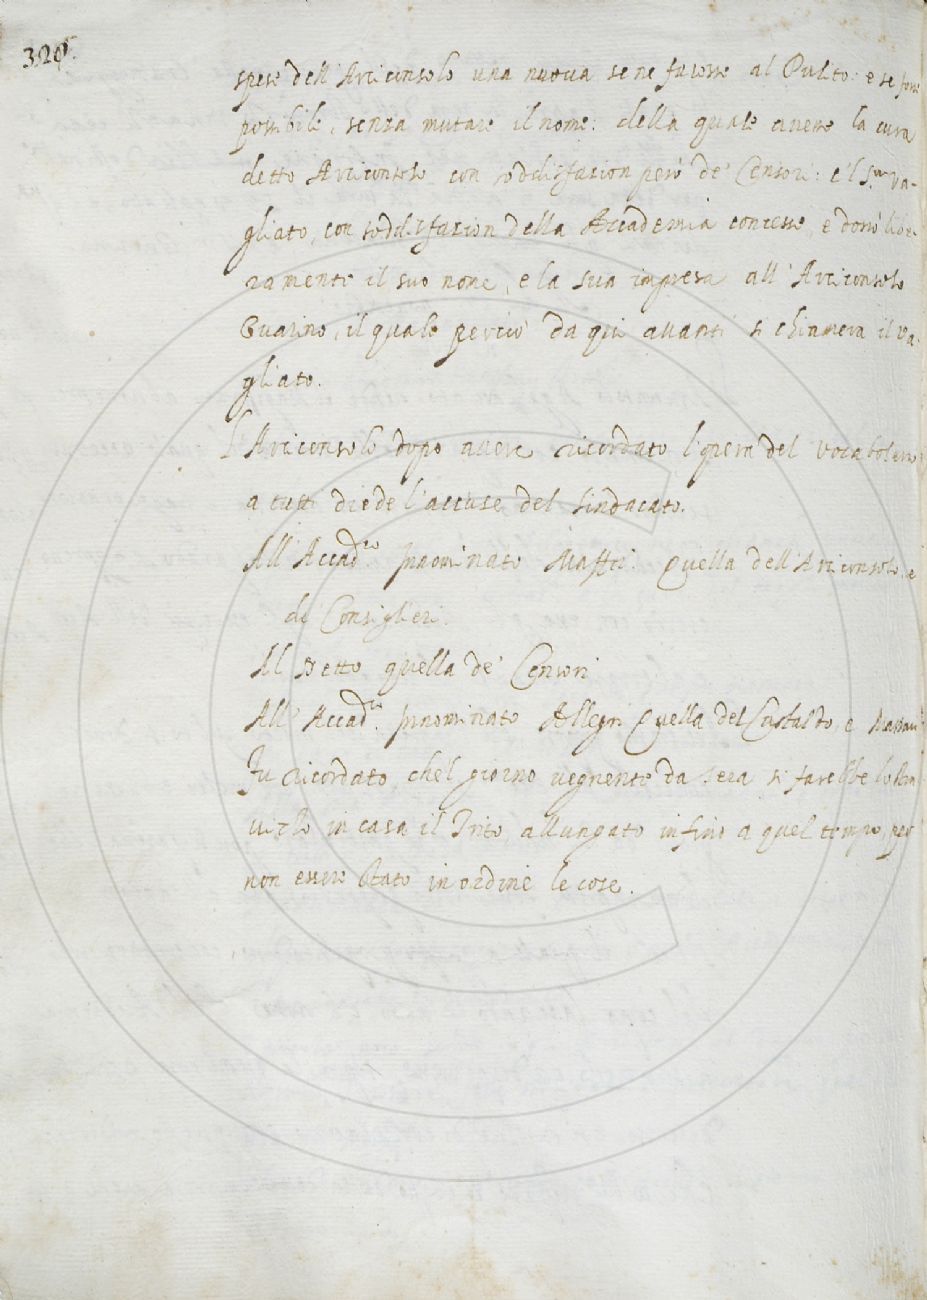 320
spese dell'Arciconsolo una nuova se ne facesse al Pulito: e se fosse
possibile, senza mutare il nome: della quale avesse la cura
detto Arciconsolo con soddisfazion però de' Censori: e 'l S.r Va-
gliato, con soddisfazion della Accademia concesse, e donò libe-
ramente il suo nome, e la sua impresa all'Arciconsolo
Guarino, il quale perciò da qui avanti si chiamerà il Va-
gliato.
L'Arciconsolo dopo avere ricordato l'opera del Vocabolario
a tutti diede l'accuse del sindacato.
All'Accad.co Innominato Maffei. Quella dell'Arciconsolo, e
de Consiglieri.
Al Detto quella de' Censori
All'Accad.co Innominato Allegri Quella del Castaldo, e Massai
Fu ricordato, che 'l giorno vegnente da sera si farebbe lo Stra
vizzo in casa il Trito, allungato infino a quel tempo, per
non essere stato in ordine le cose.